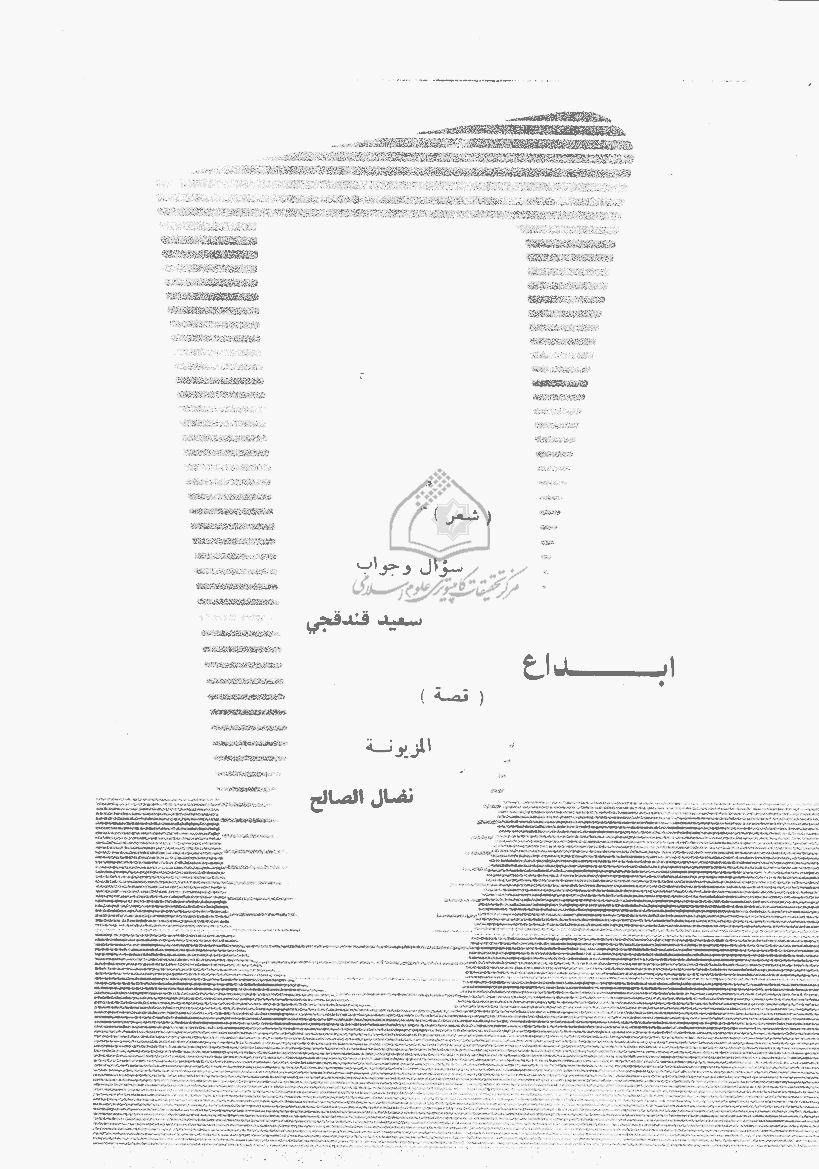 ( شعر )
سؤال وجواب
مرکز تحقیقات کامپیوتری علوم اسلامی
سعيد قندقجي
ابـــــداع
( قصة )
المزيونـة
نضال الصالح